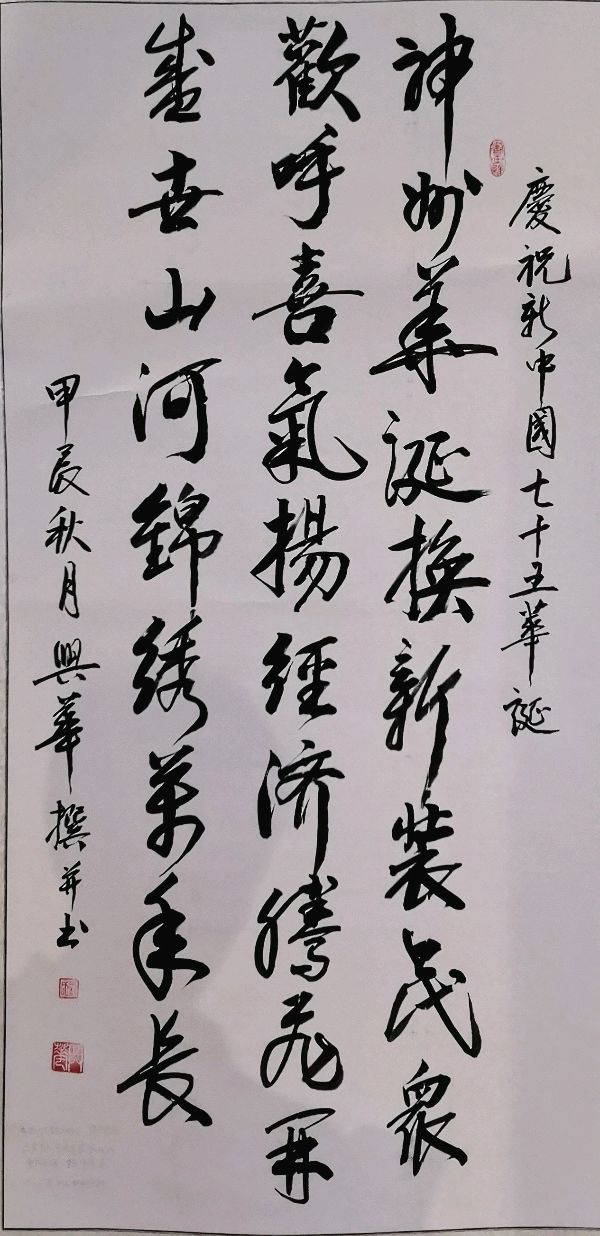 慶祝新中國七十五華誕
神州華誕換新裝民眾
歡呼喜氣揚經济騰飛開
盛世山河錦绣萬年長
甲辰秋月興華撰并书